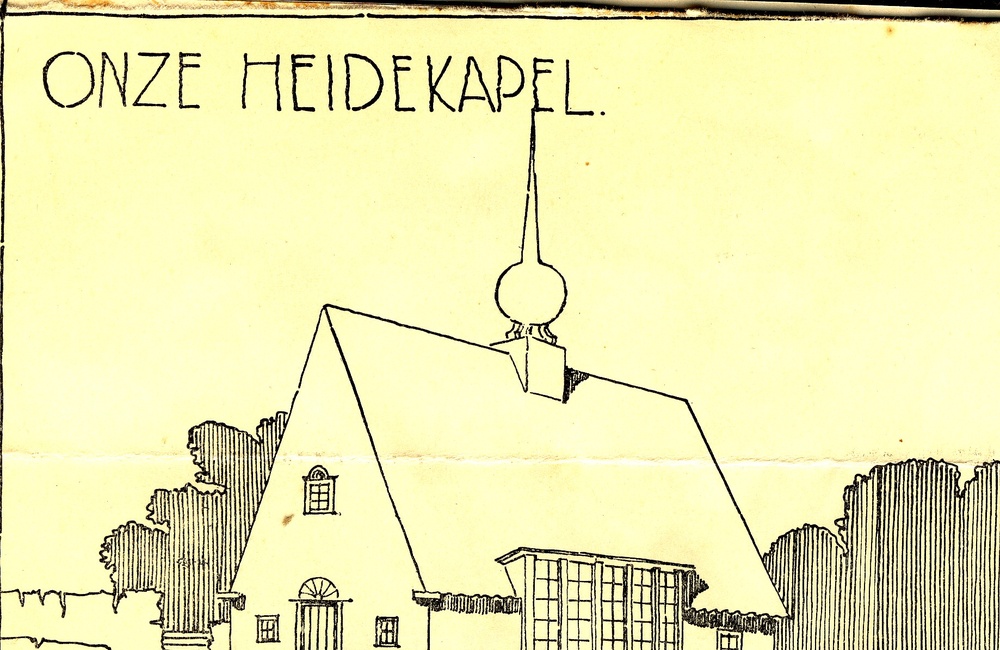 ONZE HEIDEKAPEL.